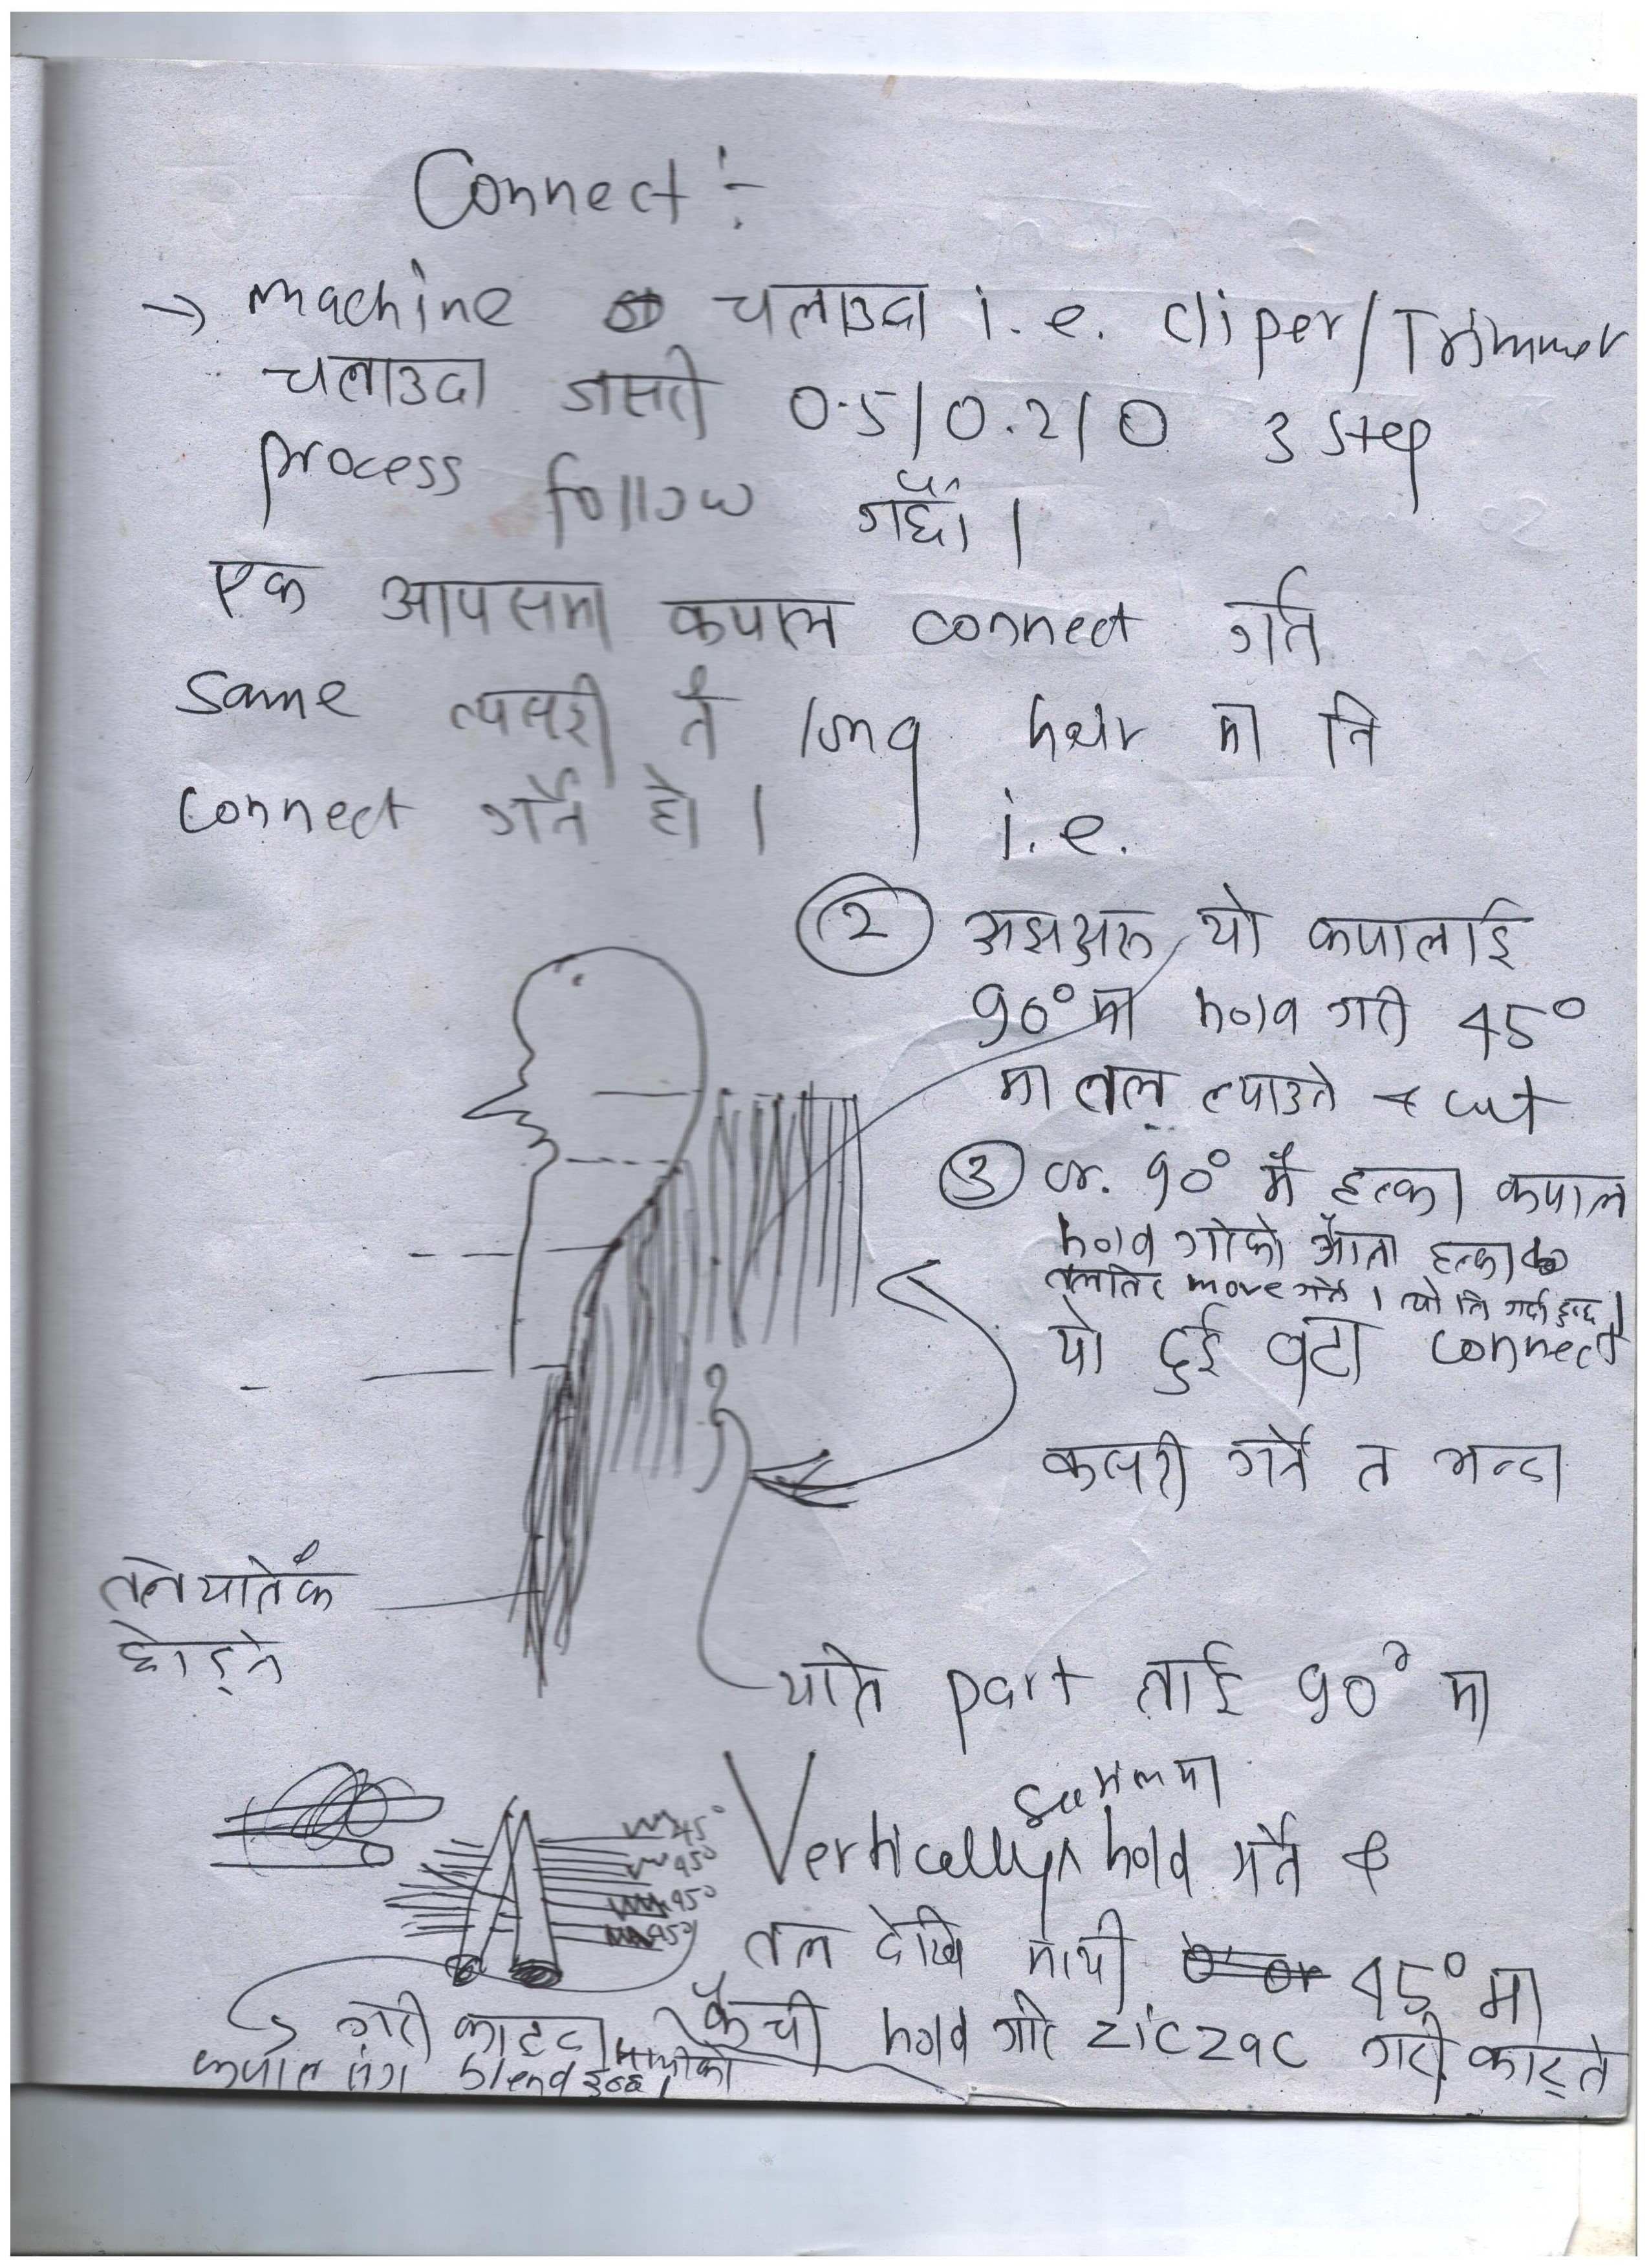 Connect :-
→ machine चलाउदा i.e. cliper/Trimmer
चलाउदा जसरी 0.5/0.2/0 3 step
process follow गर्छौं ।
एक आपसमा कपाल connect गर्न
same त्यसरी नै long hair मा नि
connect गर्ने हो । i.e.
② यो कपाललाई
90° मा hold गरी 45°
मा तल ल्याउने & cut
③ or. 90° मै हल्का कपाल
hold गरेको हल्का
तलतिर move गर्ने । त्यो नि गर्दा हुन्छ ।
यो दुई वटा connect
कसरी गर्ने त भन्दा
तल
छोड्ने
part लाई 90° मा
सानमा
Vertically ^ hold गर्ने &
45°
45°
45°
45°
तल देखि माथी 45° मा
कैची hold गरि ziczac गरी काट्ने
गरी काट्दा माथीको
कपाल संग blend हुन्छ ।